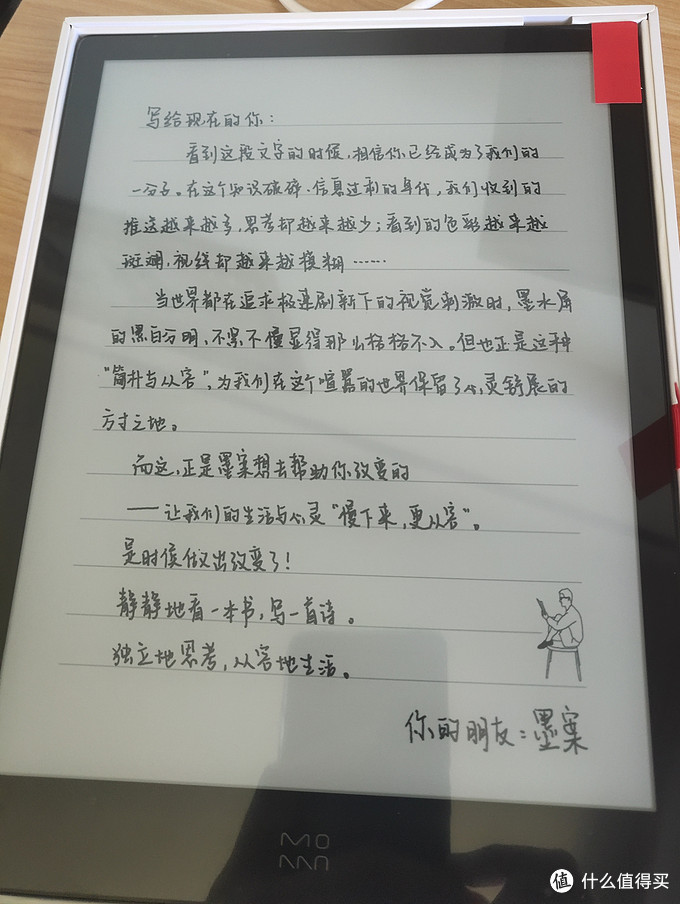 写给现在的你：
看到这段文字的时候，相信你已经成为了我们的
一份子。在这个知识碎碎、信息过剩的年代，我们收到的
推送越来越多，思考却越来越少；看到的色彩越来越
斑斓，视线却越来越模糊……
当世界都在追求极速刷新下的视觉刺激时，墨水屏
的黑白分明、不紧不慢显得那么格格不入。但也正是这种
“简朴与从容”，为我们在这个喧嚣的世界保留了心灵舒展的
方寸之地。
而这，正是墨案想去帮助你改变的
——让我们的生活与心灵“慢下来，更从容”。
是时候做出改变了！
静静地看一本书，写一首诗。
独立地思考，从容地生活。
你的朋友：墨案
MO
AAN
值 什么值得买